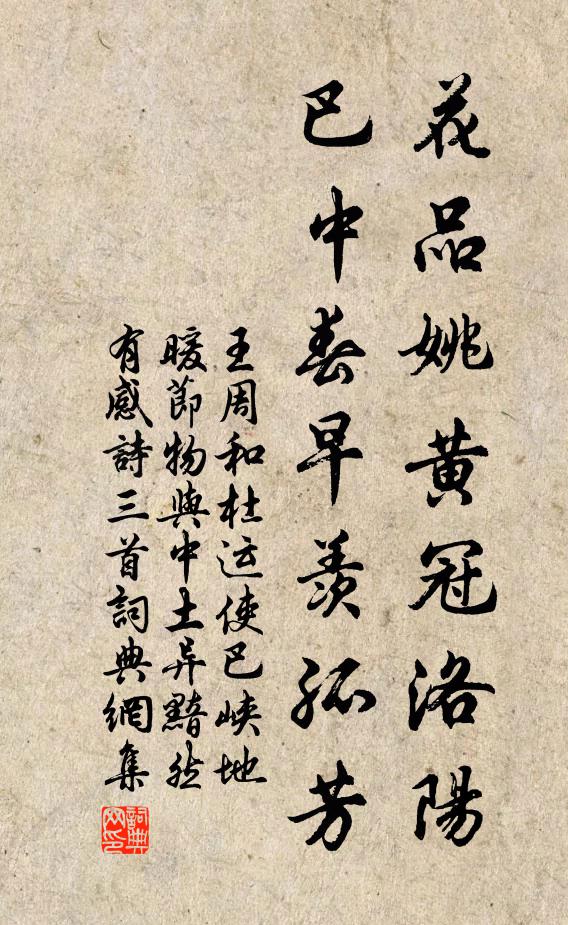 花品姚黃冠洛陽
巴中春早羨孤芳
王周和杜运使巴峽地
暖節物與中土异黯然
有感詩三首詞典網集
詞典网印